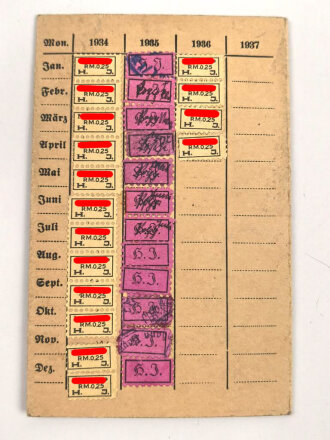 Mon. 1934 1935 1936 1937
Jan. RM.0,25 H. J. H. J. RM.0,25 H. J.
Febr. RM.0,25 H. J. RM.0,25 H. J.
März RM.0,25 H. J. RM.0,25 H. J.
April RM.0,25 H. J. RM.0,25 H. J.
Mai RM.0,25 H. J.
Juni RM.0,25 H. J.
Juli RM.0,25 H. J.
Aug. RM.0,25 H. J. H. J.
Sept. RM.0,25 H. J. H. J.
Okt. RM.0,25 H. J. H. J.
Nov. RM.0,25 H. J.
Dez. RM.0,25 H. J. H. J.